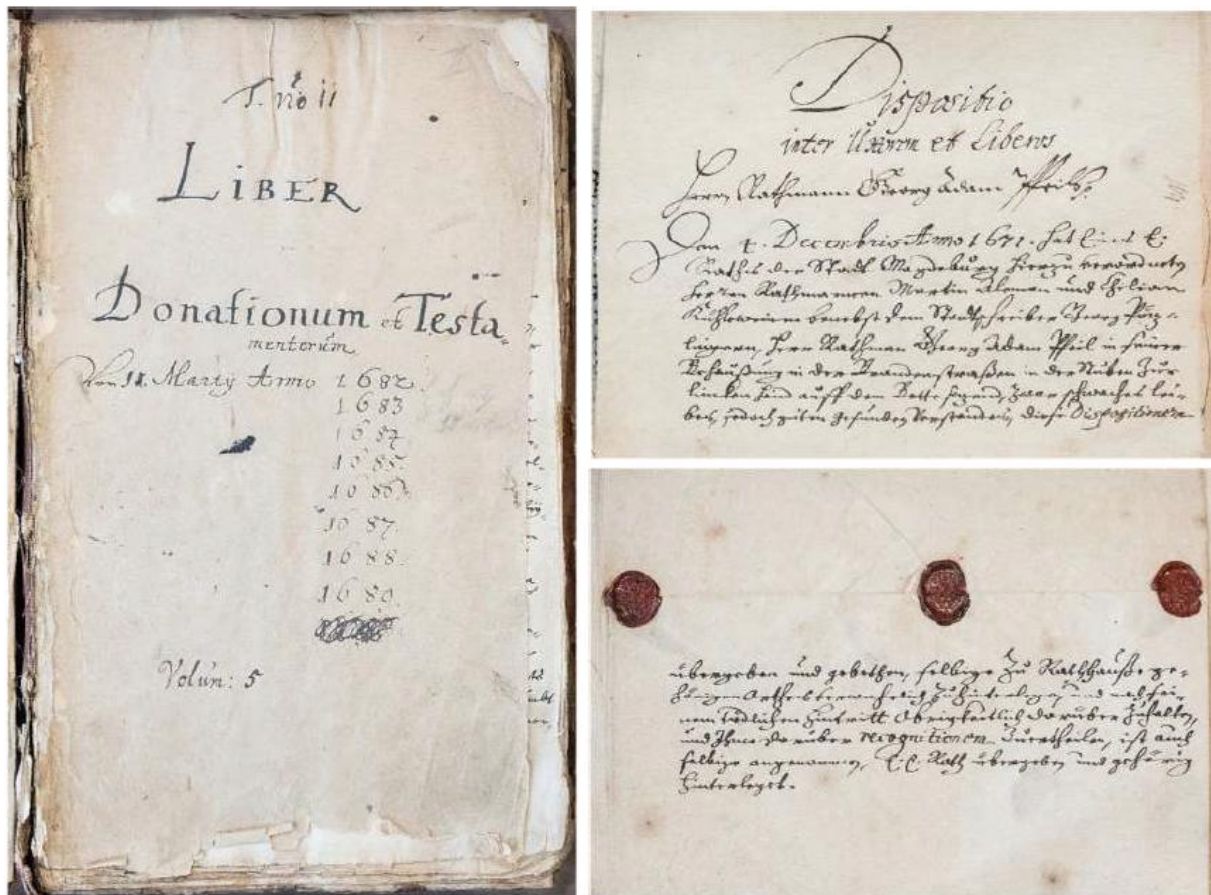 T. no 11
LIBER
Donationum et Testa-
mentorum
Von 11. Martij Anno 1682.
1683
1684
1685.
1686.
1687.
1688.
1689.
Volum: 5
Dispositio
inter Uxorem et Liberos
Herrn Rathmann Georg Adam Pfeils
Den 4. Decembris Anno 1671. hat Eines E.
Rathes der Stadt Magdeburg hierzu verordneten
Herren Rathmannen Martin Aleman und
benebst dem Stadtschreiber
Herr Rathman Georg Adam Pfeil in seiner
Behaußung in der Brandenstraßen in der Stuben zur
lincken Hand auff dem Bette sitzend, zwar schwaches lei-
bes, jedoch guten gesunden Verstandes, diese Dispositionem
übergeben und gebethen, selbige zu Rathhauße ge-
hörigen Orthe zu hinterlegen, und nach sei-
nem tödlichen Hintritt Obrigkeitlich darüber zuhalten,
und Ihme darüber recognitionem zuertheilen, ist auch
selbige angenommen, E. E. Rath übergeben und gehörig
hinterleget.